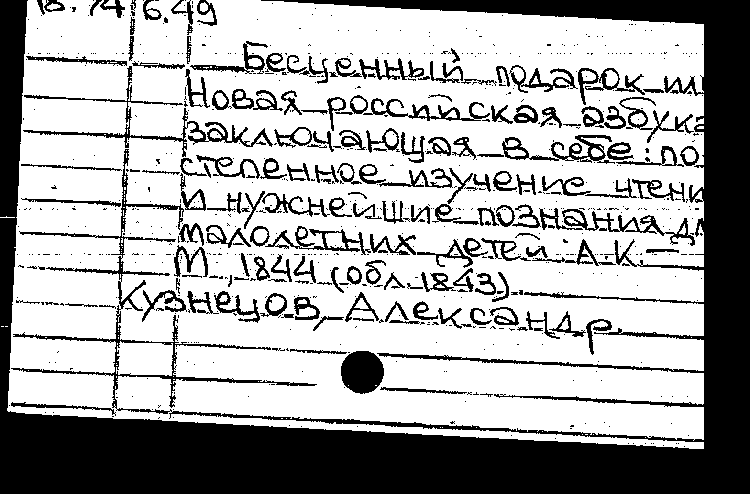 18.74 6.49
Бесценный подарок ил
Новая российская азбука
заключающая в себе: по
степенное изучение чтени
и нужнейшие познания дл
малолетних детей А.К.—
М, 1844 (обл. 1843).
Кузнецов, Александр.